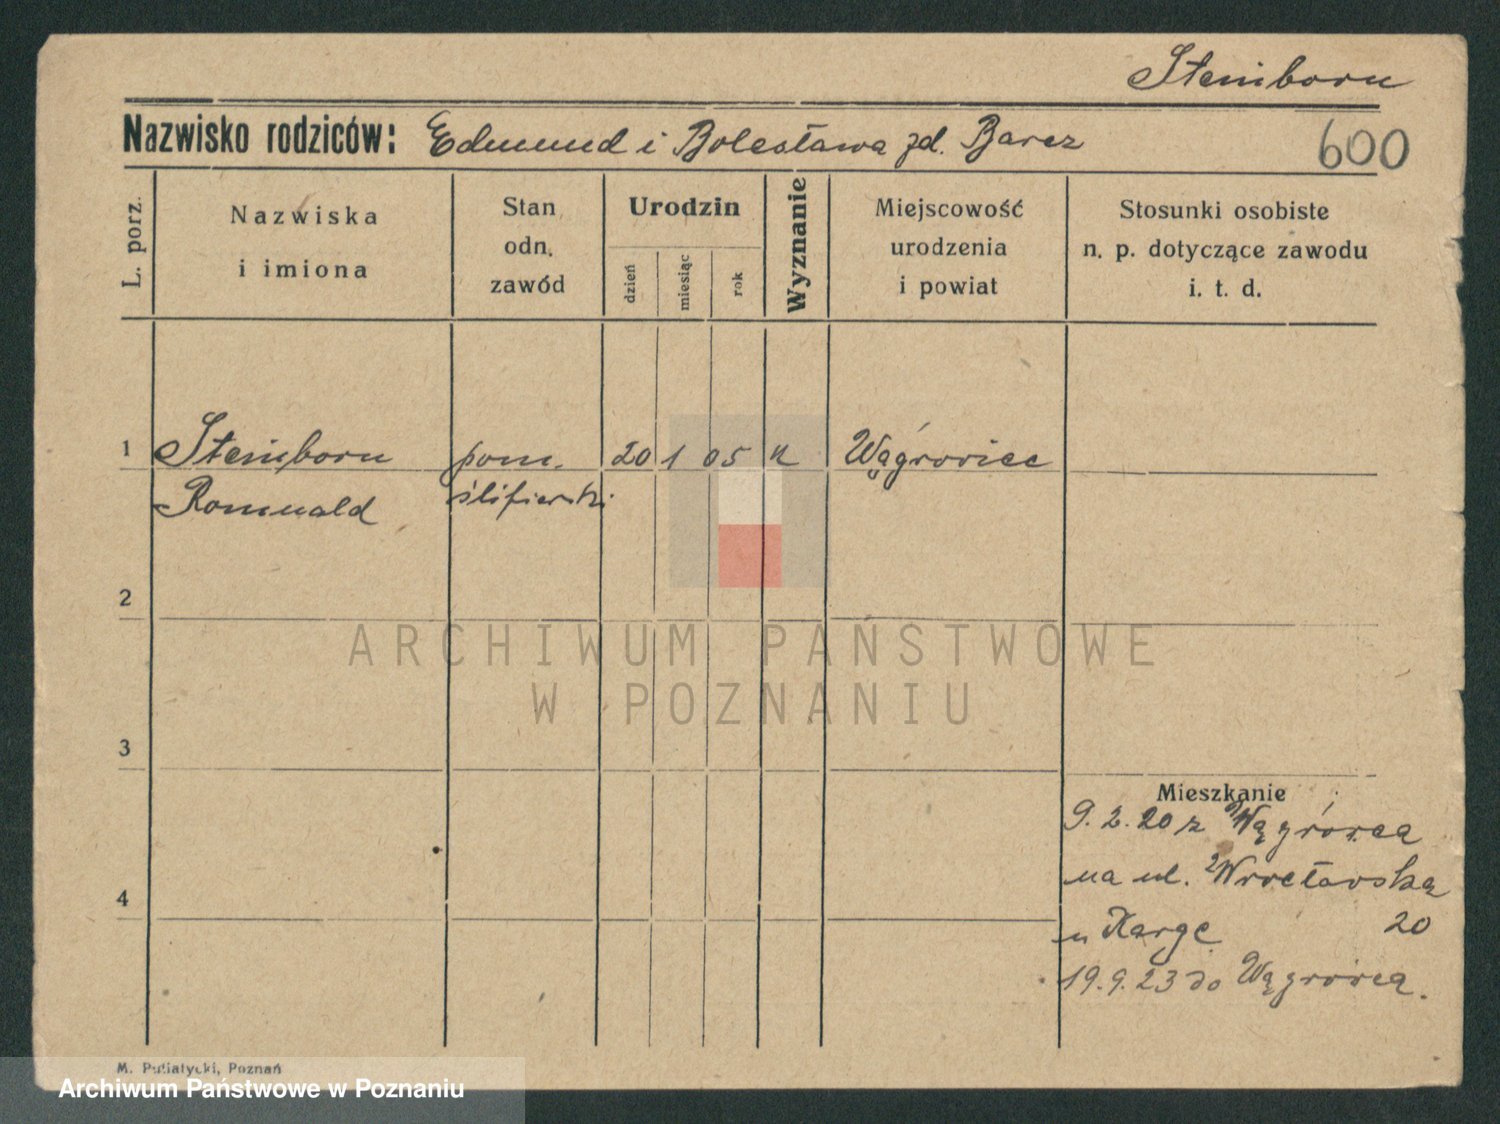 Stenborn
Nazwisko rodziców: Edmund i Bolesława zd. Barcz
600
L. porz.
Nazwiska
i imiona
Stan
odn.
zawód
Urodzin
dzień
miesiąc
rok
Wyznanie
Miejscowość
urodzenia
i powiat
Stosunki osobiste
n. p. dotyczące zawodu
i. t. d.
1 pom. 20 1 05 Wągrowiec
Romuald ślifierski
2
3
4
Mieszkanie
9. 2. 20 z Wągrówca
na ul. Wrocławską
20
19. 9. 23 do Wągrówca.
ARCHIWUM PAŃSTWOWE
W POZNANIU
M. Putiatycki, Poznań
Archiwum Państwowe w Poznaniu